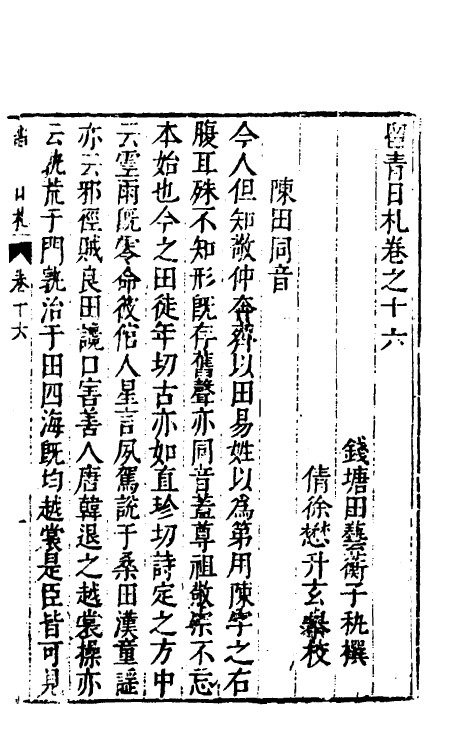 留青日札卷之十六
錢塘田藝衡子秇撰
倩徐懋升玄舉校
陳田同音
今人但知敬仲奔齊以田易姓以為第用陳字之右
腹耳殊不知形既存舊聲亦同音蓋尊祖敬宗不忘
本始也今之田徒年切古亦如直珍切詩定之方中
云靈雨既零命彼倌人星言夙駕說于桑田漢童謠
亦云邪徑賊良田讒口害善人唐韓退之越裳操亦
云孰荒于門孰治于田四海既均越裳是臣皆可見
日札 卷十六 一